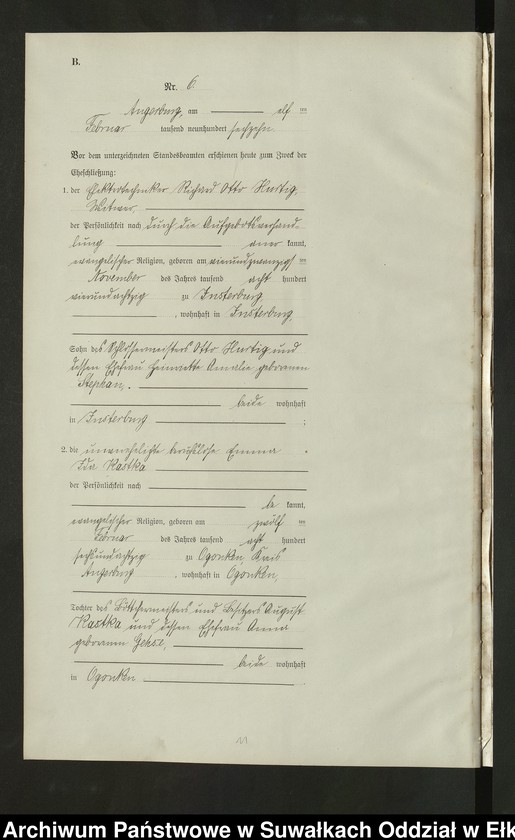 B.
Nr. 6.
Angerburg, am elf ten
Februar tausend neunhundert sechzehn.
Vor dem unterzeichneten Standesbeamten erschienen heute zum Zweck der
Eheschließung:
1. der Elektrotechniker Richard Otto Hartig,
Witwer,
der Persönlichkeit nach durch die Aufgebotsverhand-
lung aner kannt,
evangelischer Religion, geboren am vierundzwanzigs ten
November des Jahres tausend acht hundert
vierundachtzig zu Insterburg
, wohnhaft in Insterburg,
Sohn des Schlossermeisters Otto Hartig und
dessen Ehefrau Henriette Amalie geborenen
Stephan,
beide wohnhaft
in Insterburg ;
2. die unverehelichte berufslose Emma
Ida Kastka
der Persönlichkeit nach
be kannt,
evangelischer Religion, geboren am zwölf ten
Februar des Jahres tausend acht hundert
sechsundachtzig zu Ogonken, Kreis
Angerburg , wohnhaft in Ogonken,
Tochter des Böttchermeisters und Besitzers August
Kastka und dessen Ehefrau Anna
geborenen
beide wohnhaft
in Ogonken
11
Archiwum Państwowe w Suwałkach Oddział w Ełk